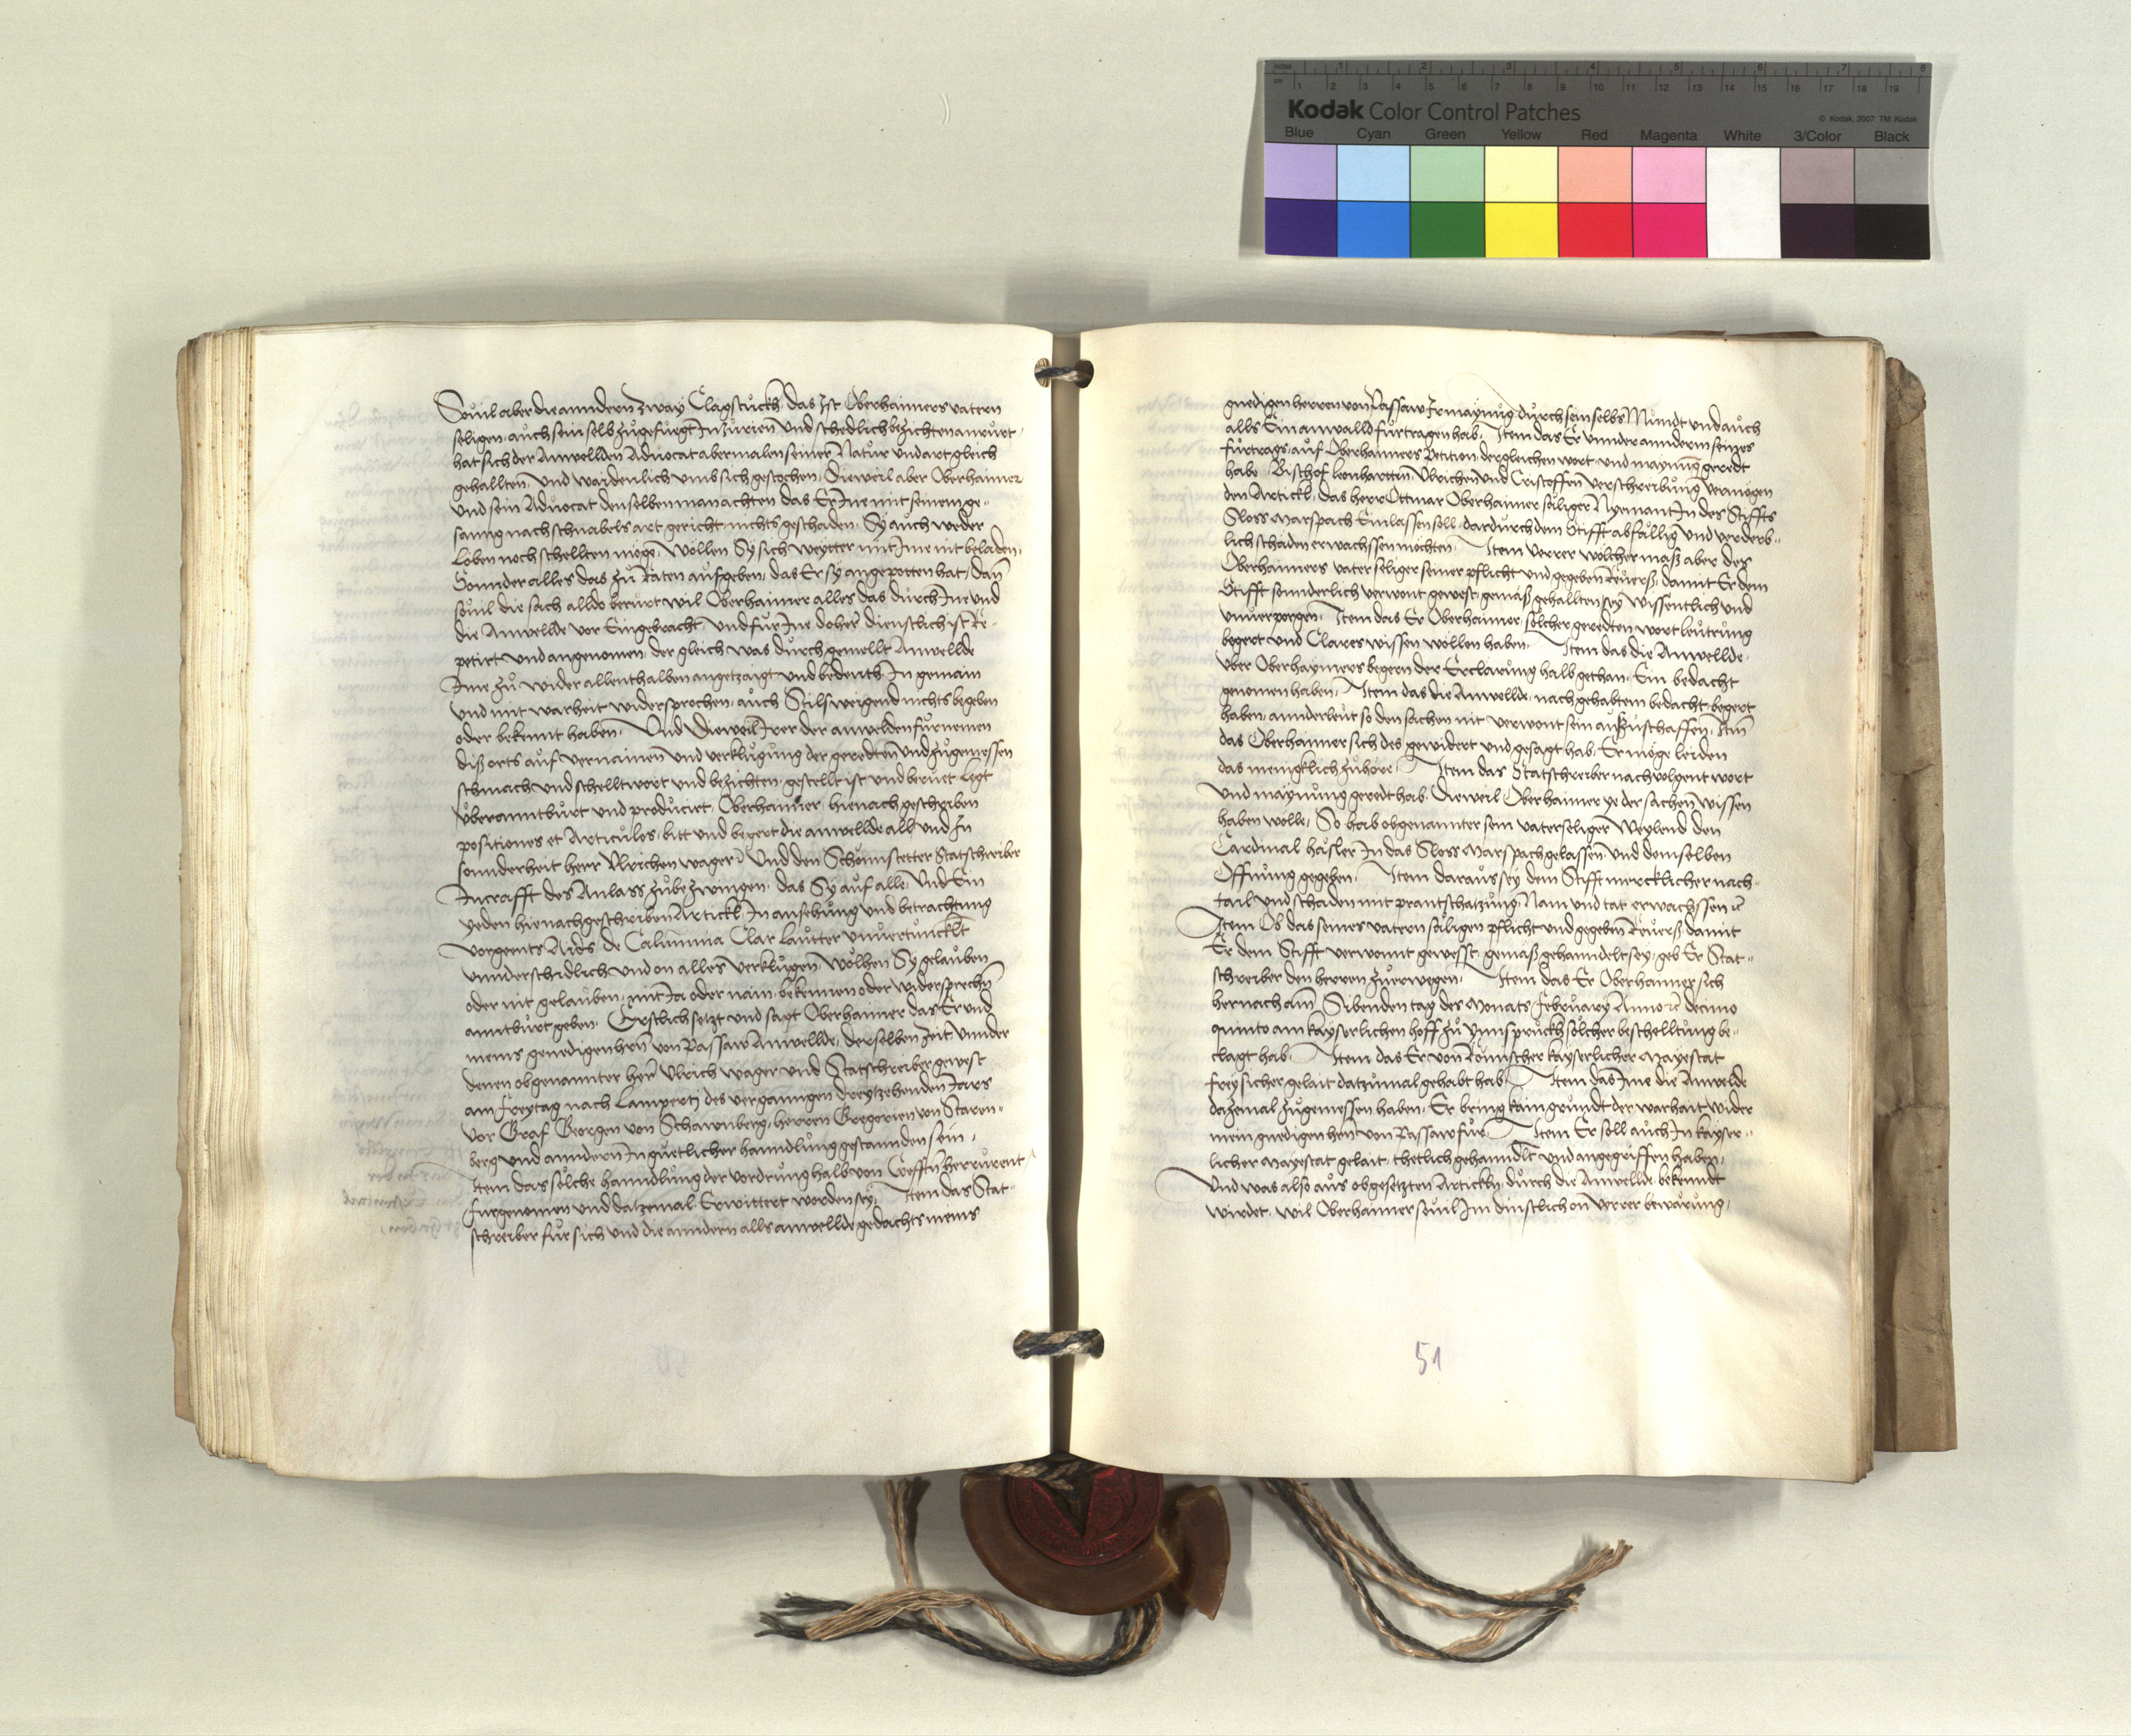 Kodak Color Control Patches
© Kodak, 2007 TM: Kodak
Blue Cyan Green Yellow Red Magenta White 3/Color Black
Souil aber die anndern zway Clagstuckh das ist Oberhaimers vatern
seligen auch sein selb zůgefuegt Inzurien und schedlich bezichten anruert
hat sich der Anwellden Aduocat abermalen seiner Natur und art gleich
gehallten, und waidenlich umb sich gestochen, Dieweil aber Oberhaimer
und sein Aduocat denselben man achten das Er Ine mit seinem ge-
sanng nach schnabels art gericht nichts geschaden, Sy auch weder
Loben noch schellten möge, Wöllen Sy sich weytter mit Ime nit beladen,
Sonnder alles das zů Raten aufgeben, das Er sy angepotten hat, dan
souil die sach alldo berůrt wil Oberhaimer alles das durch Ine und
die Anwellde vor Eingebracht, und für Ine doher dienstlich ist Re-
petirt und angenomen, der gleich was durch gemellt Anwellde
Ime zů wider allenthalben angetzaigt und bedeuth In gemain
und mit warheit widersprochen, auch Stilsweigend nichts begeben
oder bekennt haben, Und Dieweil Irer der anwelden fürnemen
diß orts auf vernainen und verklůgung der geredten und zugemessen
schmach und schelltwort und bezichten, gestellt ist und beruet Legt
überanntburt und producirt Oberhaimer, hienach geschriben
positiones et Articulos, bitt und begert die anwellde all und In
sonnderheit herr Ulrichen wager und den Schönnstetter Statschreiber
In crafft des Anlass zůbezwingen, das Sy auf alle, und Ein
yeden hienachgeschriben Artickl, In ansehung und betrachtung
vorgeents Aids de Calumnia Clar Lautter unuertunckelt
unnderschidlich und on alles verklugen, wölhen Sy gelauben
oder nit gelauben, mit Ja oder nain, bekennen oder widersprechn
anntburt geben. Erstlich setzt und sagt Oberhaimer das Er und
meins genedigen hern von Passaw Anwellde, derselben Zeit, unnder
denen obgenannter her Ulrich wager und Statschreiber gewest
am Freytag nach Lamperti des verganngen dreytzehenden Jars
vor Graf Georgen von Schawnberg, herren Gregorien von Staren-
berg und anndern In guetlicher hanndlung gestannden sein,
Item das sölche hanndlung der vordrung halb von herrurent
furgenomen und datzemal Erwittert worden sey, Item das Stat-
schreiber für sich und die anndern alls anwellde gedachts meins
gnedigen herren von Passaw Ir maynung durch sein selbs Mundt und auch
alls Ein anwalld fürtragen hab, Item das Er unnder annderm seines
fürtrags, auf Oberhaimers Petition, dergleichen wort und maynung geredt
habe, Bischof Leonhartten, Ulrichen und Cristoffen verschreibung vermögen
den Artickl, das herr Ottmar Oberhaimer säliger Nyemant In des Stiffts
Sloss Marspach Einlassen soll, dardurch dem Stifft abfällig und verderb-
lich schaden erwachssen möchten. Item verrer wölcher maß aber des
Oberhaimers vater seliger seiner pflicht und gegeben Reuerß, damit Er dem
Stifft sonnderlich verwont gewest, gemäß gehallten sey wissentlich und
unuerporgen, Item das Er Oberhaimer, sölcher geredten wort leutrung
begert und Clarer wissen wöllen haben, Item das die Anwellde,
über Oberhaymers begern der Erclarung halb gethan, Ein bedacht
genomen haben, Item das die Anwellde, nach gehabtem bedacht, begert
haben, annder leut so den sachen nit verwont sein außzuschaffen, Item
das Oberhaimer sich des gewidert und gesagt hab, Er möge leiden
das menigklich zuhöre, Item das Statschreiber nachvolgent wort
und maynung geredt hab, Dieweil Oberhaimer ye der sachen wissen
haben wölle, So hab obgenannter sein vater seliger Weylend den
Cardinal häsler In das Sloss Marspach gelassen und demselben
Offnung gegeben, Item daraus sey dem Stifft mercklicher nach-
tail und schaden mit prantschatzung, Nam und tat erwachssen ꝛc
Item Ob das seines vatern säligen pflicht und gegeben Reuerß, damit
Er dem Stifft verwonnt gewesst, gemäß gehanndelt sey, geb Er Stat-
schreiber den herren zuerwegen, Item das Er Oberhaimer sich
hernach am Sibenden tag des Monats February Anno ꝛc decimo
quinto am kayserlichen hoff zů Ynnspruckh sölcher beschelltung be-
clagt hab, Item das Er von Römischer kayserlicher Mayestat
frey sicher gelait datzumal gehabt hab, Item das Ime die Anwelde
dazemal zugemessen haben, Er bring kain grundt der warhait wider
mein gnedigen hern von Passaw für, Item Er soll auch In kayser-
licher Mayestat gelait, thetlich gehanndlt und angegriffen haben,
Und was also aus obgesetzten Artickln, durch die Anwellde bekenndt
wirdet, wil Oberhaimer souil Im dinstlich on verrer bewärung,
51